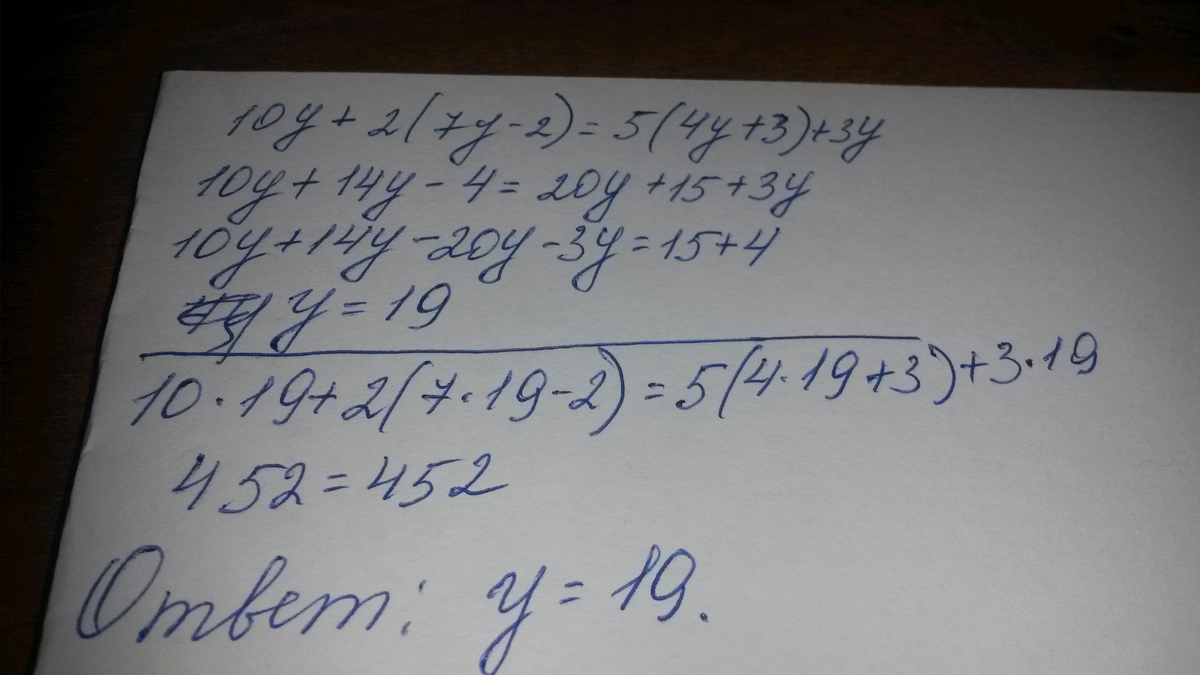 10y + 2(7y-2) = 5(4y+3)+3y
10y + 14y - 4 = 20y +15 +3y
10y+14y-20y-3y=15+4
y = 19
10·19+2(7·19-2) = 5(4·19+3)+3·19
452 = 452
Ответ: y = 19.